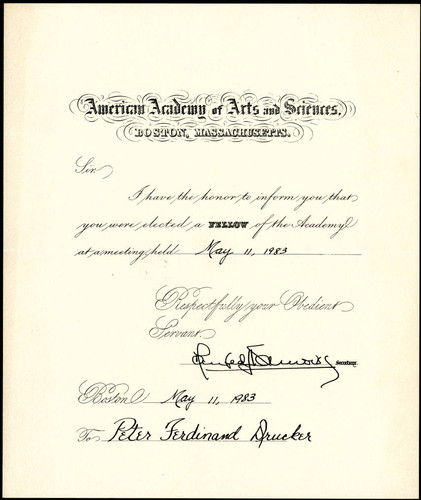 American Academy of Arts and Sciences,
BOSTON, MASSACHUSETTS.
Sir,
I have the honor to inform you that
you were elected a FELLOW of the Academy
at a meeting held May 11, 1983
Respectfully your Obedient
Servant.
Secretary.
Boston May 11, 1983
To Peter Ferdinand Drucker